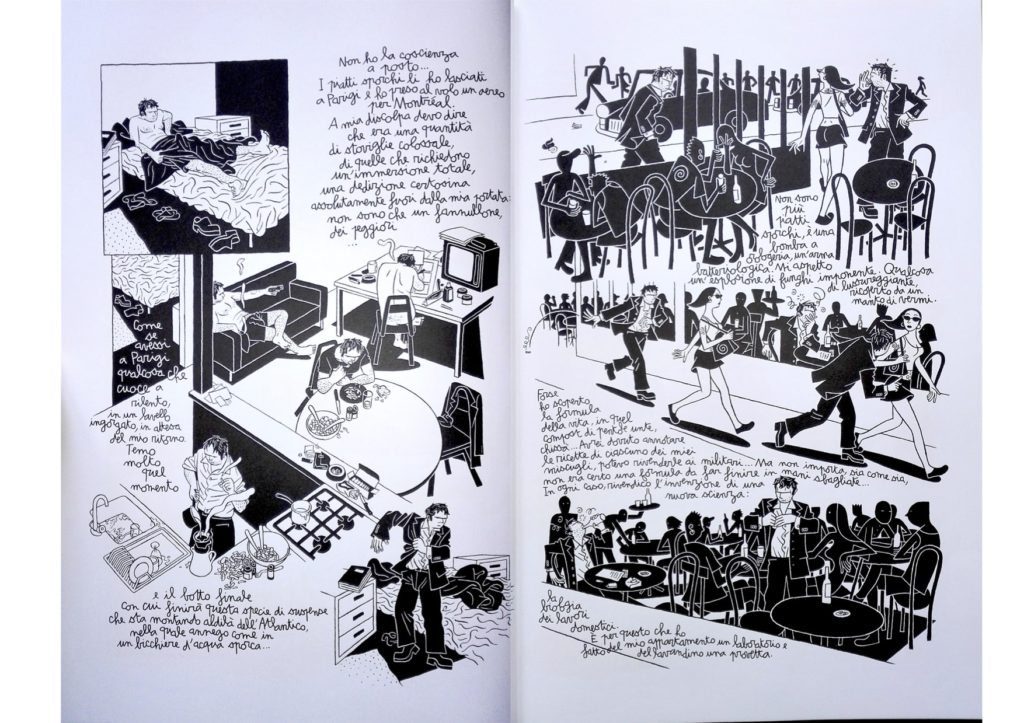 Non ho la coscienza
a posto...
I piatti sporchi li ho lasciati
a Parigi e ho preso al volo un aereo
per Montréal.
A mia discolpa devo dire
che era una quantità
di stoviglie colossale,
di quelle che richiedono
un'immersione totale,
una dedizione certosina
assolutamente fuori dalla mia portata:
non sono che un fannullone,
dei peggiori
...
Come
se
avessi
a Parigi
qualcosa che
cuoce a
rilento,
in un lavello
ingorgato, in attesa
del mio ritorno.
Temo
molto
quel
momento
e il botto finale
con cui finirà questa specie di suspense
che sta montando aldilà dell'Atlantico,
nella quale annego come in
un bicchiere d'acqua sporca...
Non sono
più
piatti
sporchi, è una
bomba a
orologeria, un'arma
batteriologica. Mi aspetto
un'esplosione di funghi imponente. Qualcosa
di lussureggiante,
ricoperto da un
manto di vermi.
Forse
ho scoperto
la formula
della vita, in quel
compost di pentole unte,
chissà... Avrei dovuto annotare
le ricette di ciascuno dei miei
miscugli, potevo rivenderle ai militari... Ma non importa, sia come sia,
non era certo una formula da far finire in mani sbagliate...
In ogni caso, rivendico l'invenzione di una
nuova scienza:
la
biologia
dei lavori
domestici.
È per questo che ho
fatto del mio appartamento un laboratorio e
del lavandino una provetta.